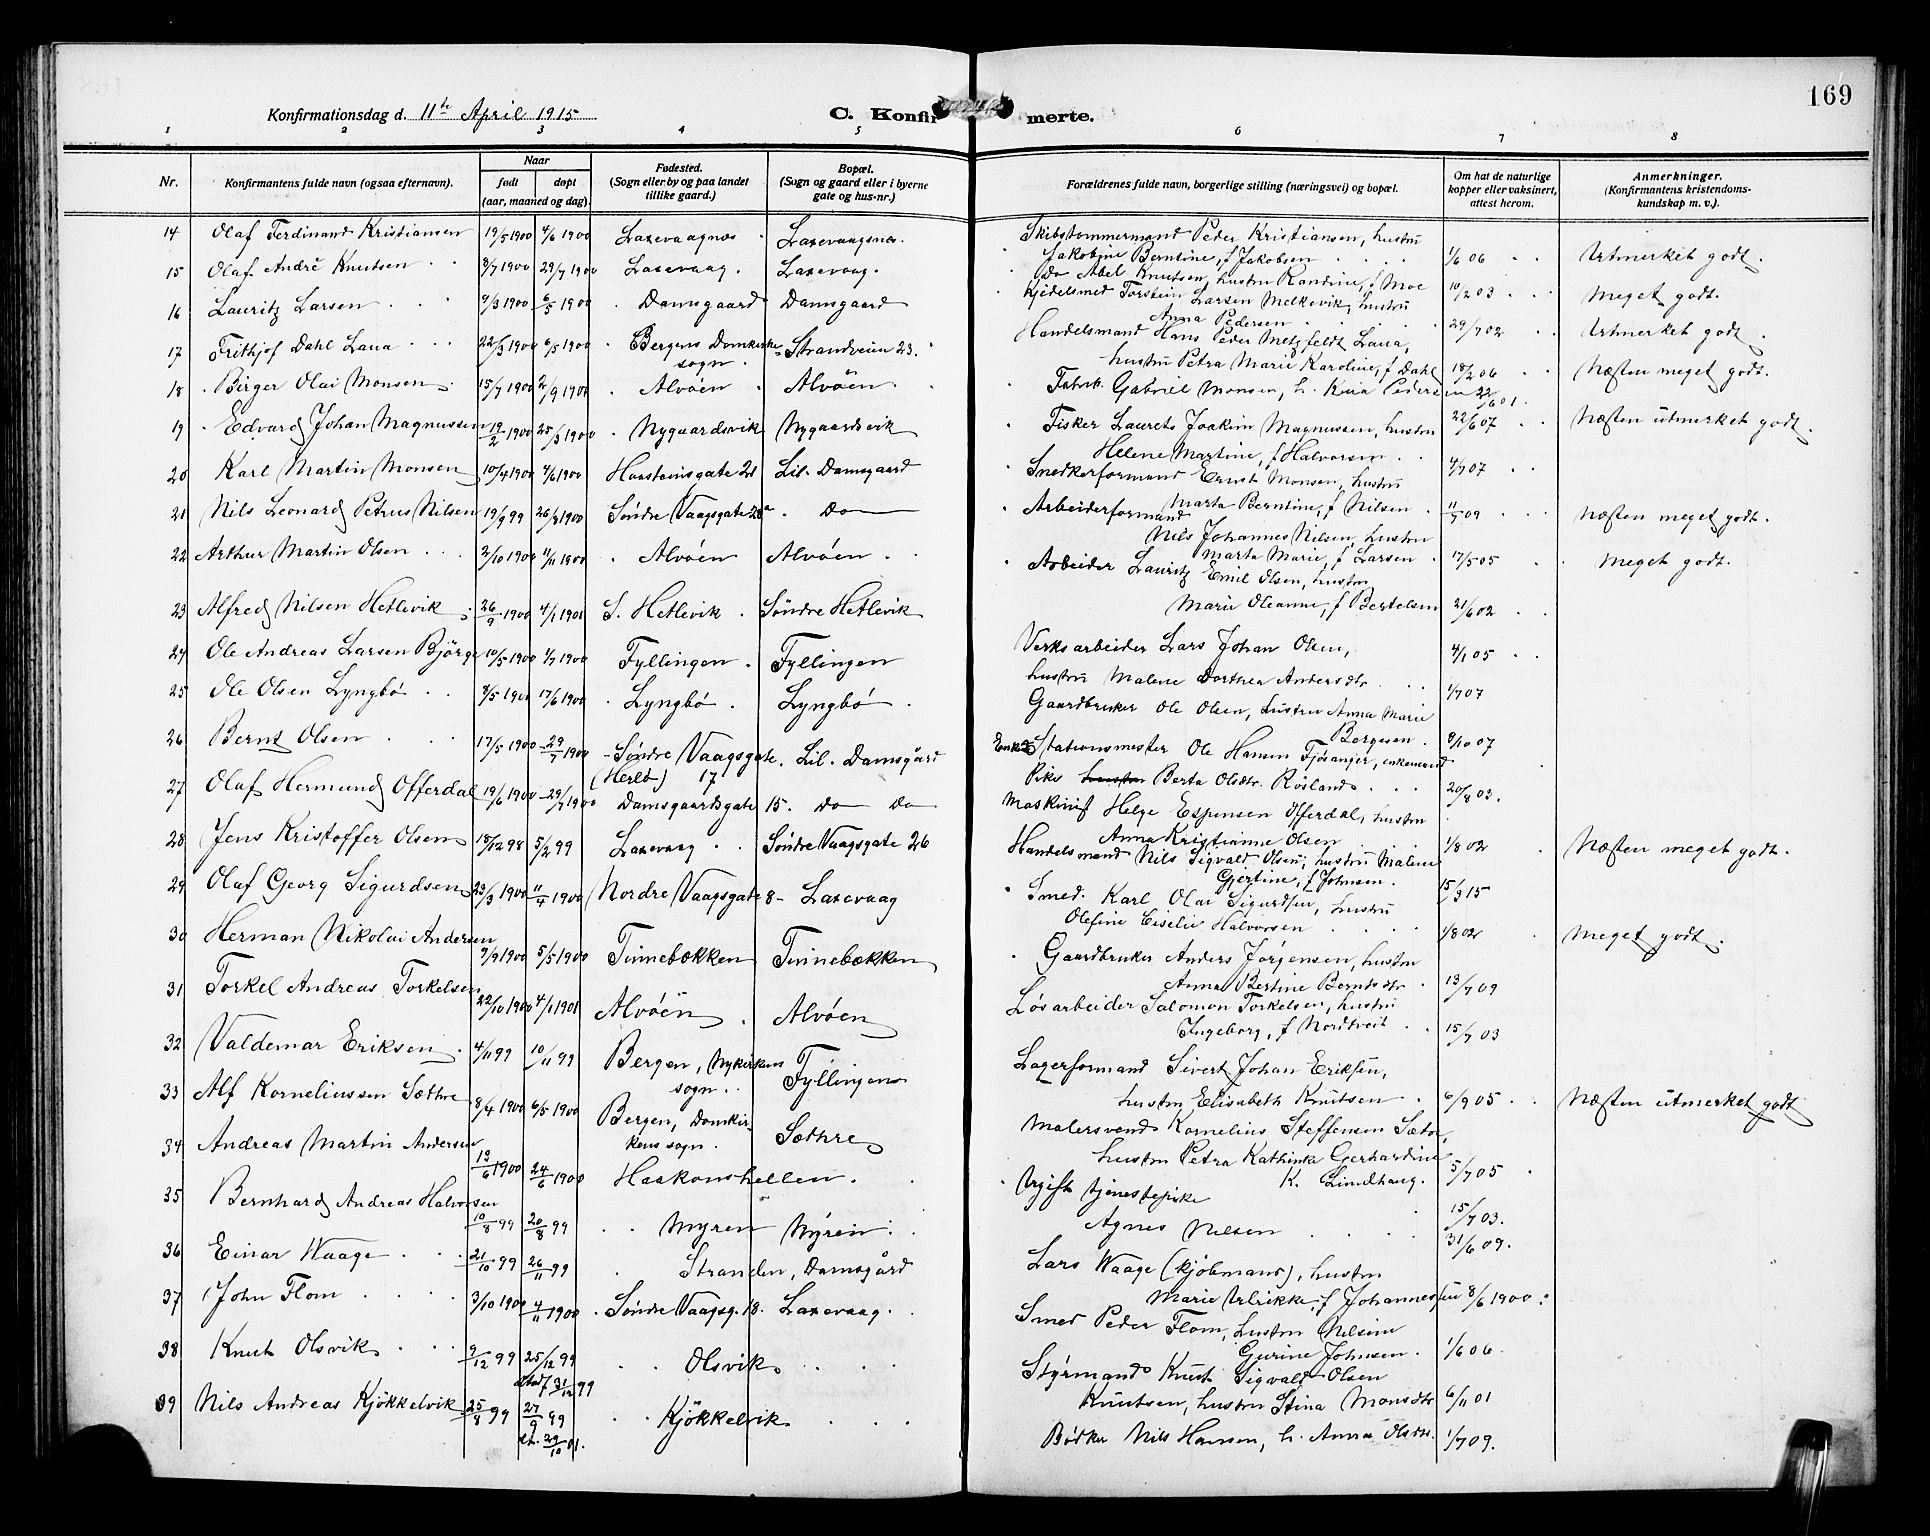 169
Konfirmationsdag d. 11te April 1915
C. Konfirmerte.
1 2 3 4 5 6 7 8
Nr.
Konfirmantens fulde navn (ogsaa efternavn).
Naar
født døpt
(aar, maaned og dag).
Fødested.
(Sogn eller by og paa landet
tillike gaard.)
Bopæl.
(Sogn og gaard eller i byerne
gate og hus-nr.)
Forældrenes fulde navn, borgerlige stilling (næringsvei) og bopæl.
Om hat de naturlige
kopper eller vaksinert,
attest herom.
Anmerkninger.
(Konfirmantens kristendoms-
kundskap m. v.).
14 Olaf Ferdinand Kristiansen 19/5 1900 4/6 1900 Laxevaagnes Laxevaagsnes. Skibstømmermand Peder Kristiansen, hustru
Jakobine Berntine, f Jakobsen 1/6 06 Utmerket godt.
15 Olaf Andrè Knutsen 3/7 1900 29/7 1900 Laxevaag. Laxevaag. Do Abel Knutsen, hustru Randine, f Moe 10/2 03 Meget godt.
16 Lauritz Larsen 9/3 1900 6/5 1900 Damsgaard Damsgaard Kjedelsmed Torstein Larsen Melkevik, hustru
Anna Pedersen 29/7 02 Utmerket godt.
17 Frithjof Dahl Laua 22/3 1900 6/5 1900 Bergens Domkirke-
sogn. Strandveien 23. Handelsmand Hans Peder Metzfeldt Laua,
hustru Petra Marie Karoline, f Dahl 18/2 06 Næsten meget godt.
18 Birger Olai Monsen 15/7 1900 2/9 1900 Alvöen Alvöen. Fabrik. Gabriel Monsen, h. Kaia Pedersen 22/6 01.
19 Edvard Johan Magnussen 19/2 1900 25/3 1900 Nygaardsvik Nygaardsvik Fisker Laurets Joakim Magnussen, hustru 22/6 07 Næsten utmerket godt.
Helene Martine, f Halvorsen
20 Karl Martin Monsen 10/4 1900 4/6 1900 Haasteinsgate 21 Lil. Damsgaard Snedkerformand Ernst Monsen, hustru 4/7 07
Marta Berntine, f Nilsen
21 Nils Leonard Petrus Nilsen 19/9 99 26/8 1900 Søndre Vaagsgate 20a Do Arbeiderformand
Nils Johannes Nilsen, hustru 11/9 09 Næsten meget godt.
Marta Marie, f Larsen
22 Arthur Martin Olsen 2/10 1900 11/11 1900 Alvöen Alvöen. Arbeider Lauritz Emil Olsen, hustru 17/5 05 Meget godt.
Marie Oleanne, f Bertelsen
23 Alfred Nilsen Hetlevik 26/9 1900 4/1 1901 S. Hetlevik Søndre Hetlevik 21/6 02
24 Ole Andreas Larsen Bjørge 10/5 1900 1/7 1900 Fyllingen. Fyllingen Verksarbeider Lars Johan Olsen,
hustru Malene Dorthea Andersdtr. 4/1 05
25 Ole Olsen Lyngbö 3/5 1900 17/6 1900 Lyngbö. Lyngbö Gaardbruker Ole Olsen, hustru Anna Marie
Bergesen. 1/7 07
26 Bernt Olsen 17/5 1900 29/7 1900 Søndre Vaagsgate
(Herlö) 17 Lil. Damsgård Enkem. Stationsmester Ole Hansen Fjøsanger, enkemand 9/10 07
Pike hustru Berta Olsdtr. Røsland
27 Olaf Hermund Offerdal 19/6 1900 29/7 1900 Damsgaardsgate 15. Do Do Maskinist Helge Espensen Offerdal, hustru 20/8 03.
Anna Kristianne Olsen
28 Jens Kristoffer Olsen 18/12 98 5/2 99 Laxevaag Søndre Vaagsgate 26 Handelsmand Nils Sigvald Olsen, hustru Malene
Gjertine, f Johnsen. 1/8 02 Næsten meget godt.
29 Olaf Georg Sigurdsen 23/3 1900 11/4 1900 Nordre Vaagsgate 8 Laxevaag Smed. Karl Olai Sigurdsen, hustru 15/3 15
Olefine Ciselie Halvorsen
30 Herman Nikolai Andersen 9/9 1900 5/5 1900 Tinnebækken Tinnebækken Gaardbruker Anders Jørgensen, hustru 1/8 02 Meget godt.
Anna Bertine Berntsdtr.
31 Torkel Andreas Torkelsen 22/10 1900 4/1 1901 Alvöen Alvöen Løsarbeider Salomon Torkelsen, hustru 13/7 09
Ingeborg, f Nordtveit
32 Valdemar Eriksen 4/11 99 10/11 99 Bergen, Nykirkens
sogn. Fyllingen Lagerformand Sivert Johan Eriksen, 15/7 03
hustru Elisabeth Knutsen
33 Alf Korneliussen Sæthre 8/4 1900 6/5 1900 Bergen, Domkir-
kens sogn. Sæthre Malersvend Kornelius Steffensen Sætre, 6/9 05 Næsten utmerket godt
hustru Petra Kathinka Gerhardine
K. Lindhaug.
34 Andreas Martin Andersen 13/6 1900 24/6 1900 Haakonshellen. Ugift tjenestepike
Agnes Nilsen 5/7 05
35 Bernhard Andreas Halvorsen 10/8 99 20/8 99 Myren Myren 15/7 03.
36 Einar Waage 21/10 99 26/11 99 Stranden, Damsgård Lars Waage (kjøbmand), hustru 31/6 09.
Marie Ulrikke, f Johannesen 8/6 1900.
37 John Flom 3/10 1900 4/11 1900 Søndre Vaagsg. 18. Laxevaag. Smed Peder Flom, hustru Nilsine
Gurine Johnsen. 1/6 06.
38 Knut Olsvik 9/12 99 25/12 99
stadf 31/12 99 Olsvik Styrmand Knut Sigvald Olsen
Knutsen, hustru Stina Monsdtr 6/11 01
39 Nils Andreas Kjøkkelvik 25/8 99 27/9 99
st. 29/10 01. Kjøkkelvik Bødker Nils Hansen, h. Anna Olsdtr. 1/7 09.